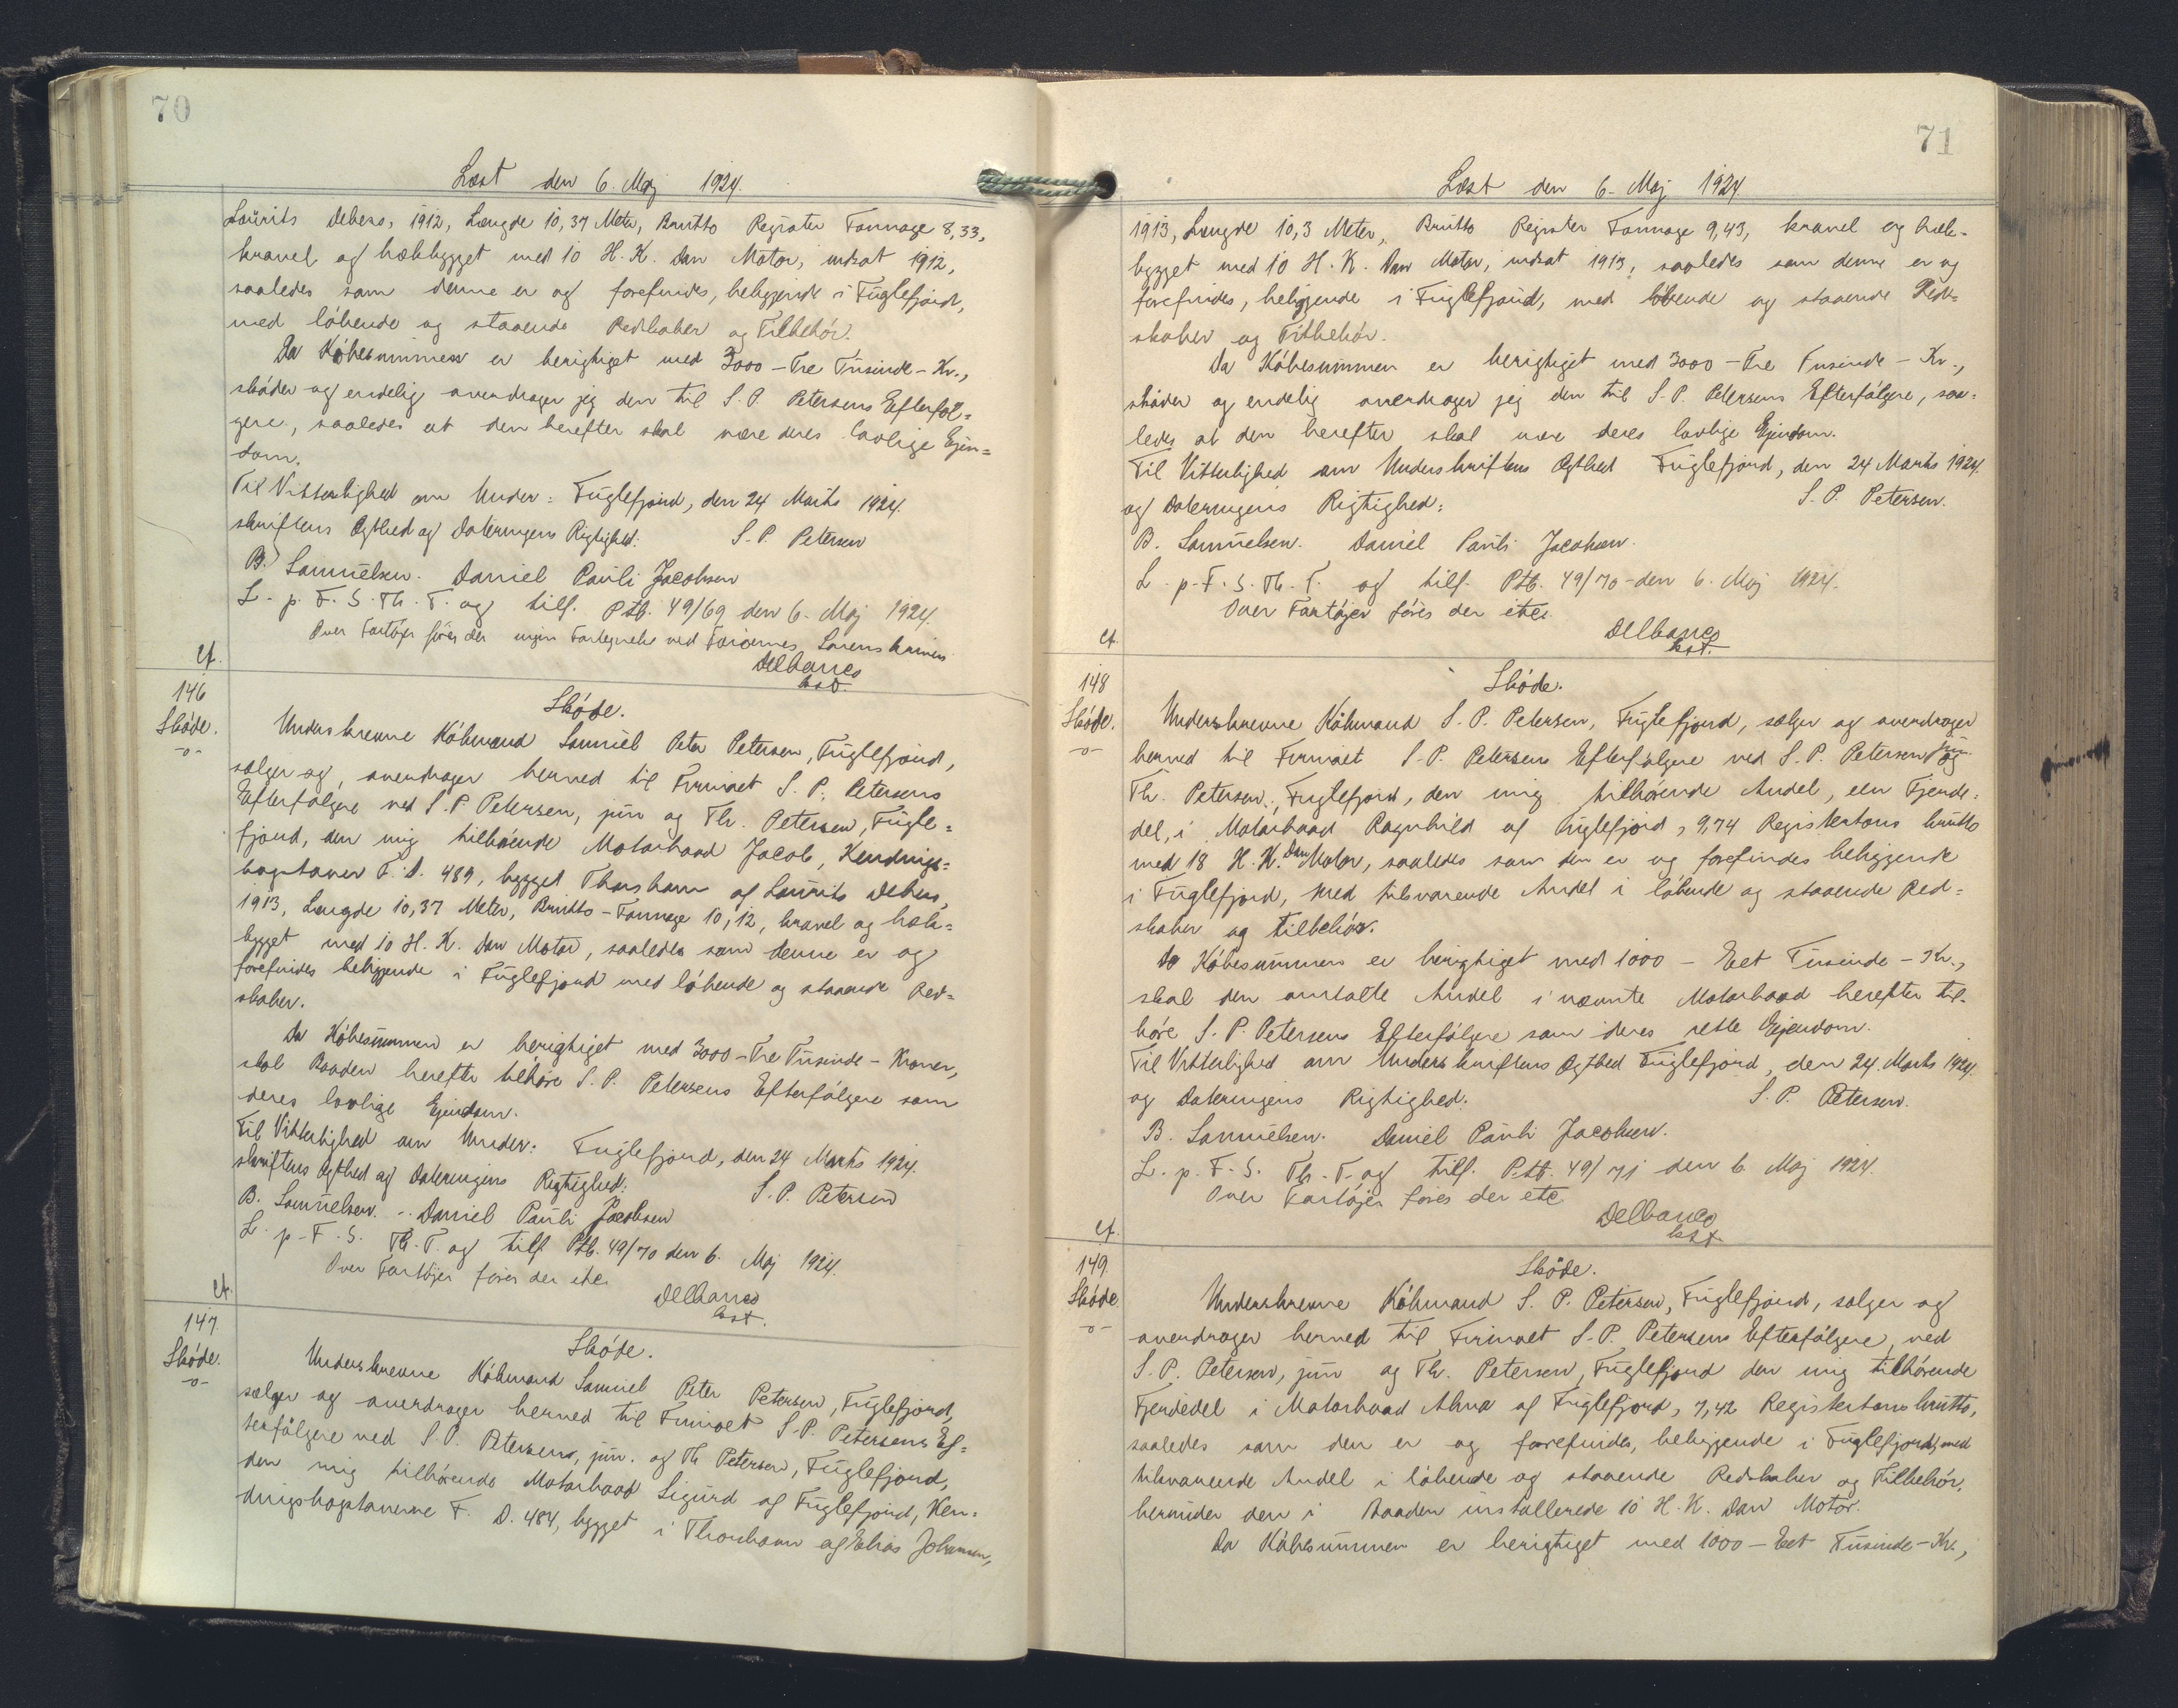 70
Læst den 6. Maj 1924.
Laurits Debess, 1912, Længde 10,37 Meter, Brutto Register Tonnage 8,33,
kravel og hækbygget med 10 H. K. Dan Motor, indsat 1912,
saaledes som denne er og forefindes, beliggende i Fuglefjord,
med løbende og staaende Redskaber og Tilbehør.
Da Købesummen er berigtiget med 3000 - Tre Tusinde - Kr.,
skøder og endelig overdrager jeg den til S. P. Petersens Efterføl=
gere, saaledes at den herefter skal være deres lovlige Ejen=
dom.
Til Vitterlighed om Under= Fuglefjord, den 24 Marts 1924.
skriftens Ægthed og Dateringens Rigtighed: S. P. Petersen
B. Samuelsen. Daniel Pauli Jacobsen
L. p. F. S. Th. T. og tilf. Ptb. 49/69 den 6. Maj 1924.
Over Fartøjer føres der ingen Fortegnelse ved Færøernes Sorenskriveri
Delbanco
kst.
cf.
146
Skøde.
-o-
Skøde.
Underskrevne Købmand Samuel Peter Petersen, Fuglefjord,
sælger og overdrager herved til Firmaet S. P. Petersens
Efterfølgere ved S. P. Petersen, jun og Th. Petersen, Fugle=
fjord, den mig tilhørende Motorbaad Jacob, Kendings=
bogstaver F. D. 489, bygget Thorshavn af Laurits Debess,
1913, Længde 10,37 Meter, Brutto-Tonnage 10,12, kravel og hæk=
bygget med 10 H. K. Dan Motor, saaledes som denne er og
forefindes beliggende i Fuglefjord med løbende og staaende Red=
skaber.
Da Købesummen er berigtiget med 3000 - Tre Tusinde - Kroner,
skal Baaden herefter tilhøre S. P. Petersens Efterfølgere som
deres lovlige Ejendom.
Til Vitterlighed om Under= Fuglefjord, den 24 Marts 1924.
skriftens Ægthed og Dateringens Rigtighed: S. P. Petersen
B. Samuelsen. Daniel Pauli Jacobsen
L. p. F. S. Th. T. og tilf. Ptb. 49/70 den 6. Maj 1924.
Over Fartøjer føres der etc.
Delbanco
kst.
cf.
147
Skøde.
-o-
Skøde.
Underskrevne Købmand Samuel Peter Petersen, Fuglefjord,
sælger og overdrager herved til Firmaet S. P. Petersens Ef=
terfølgere ved S. P. Petersens, jun. og Th Petersen, Fuglefjord,
den mig tilhørende Motorbaad Sigurd af Fuglefjord, Ken=
dingsbogstaverne F. D. 484, bygget i Thorshavn af Elias Johansen,
71
Læst den 6. Maj 1924.
1913, Længde 10,3 Meter, Brutto Register Tonnage 9,43, kravel og hæk-
bygget med 10 H. K. Dan Motor, indsat 1913, saaledes som denne er og
forefindes, beliggende i Fuglefjord, med løbende og staaende Red=
skaber og Tilbehør.
Da Købesummen er berigtiget med 3000 - Tre Tusinde - Kr.,
skøder og endelig overdrager jeg den til S. P. Petersens Efterfølgere, saa=
ledes at den herefter skal være deres lovlige Ejendom.
Til Vitterlighed om Underskriftens Ægthed Fuglefjord, den 24 Marts 1924.
og Dateringens Rigtighed: S. P. Petersen.
B. Samuelsen. Daniel Pauli Jacobsen.
L. p. F. S. Th. T. og tilf. Ptb. 49/70 - den 6. Maj 1924.
Over Fartøjer føres der etc.
Delbanco
kst.
cf.
148
Skøde.
-o-
Skøde.
Underskrevne Købmand S. P. Petersen, Fuglefjord, sælger og overdrager
herved til Firmaet S. P. Petersens Efterfølgere ved S. P. Petersen jun. og
Th. Petersen, Fuglefjord, den mig tilhørende Andel, een Fjerde=
del, i Motorbaad Ragnhild af Fuglefjord, 9,74 Registertons brutto
med 18 H. K. Dan Motor, saaledes som den er og forefindes beliggende
i Fuglefjord, med tilsvarende Andel i løbende og staaende Red=
skaber og tilbehør.
Da Købesummen er berigtiget med 1000 - Eet Tusinde - Kr.,
skal den omtalte Andel i nævnte Motorbaad herefter til=
høre S. P. Petersens Efterfølgere som deres rette Ejendom.
Til Vitterlighed om Underskriftens Ægthed Fuglefjord, den 24. Marts 1924.
og Dateringens Rigtighed: S. P. Petersen.
B. Samuelsen. Daniel Pauli Jacobsen.
L. p. F. S. Th. T. og tilf. Ptb. 49/71 den 6. Maj 1924.
Over Fartøjer føres der etc.
Delbanco
kst
cf.
149.
Skøde
-o-
Skøde.
Underskrevne Købmand S. P. Petersen, Fuglefjord, sælger og
overdrager herved til Firmaet S. P. Petersens Efterfølgere, ved
S. P. Petersen, jun og Th. Petersen, Fuglefjord den mig tilhørende
Fjerdedel i Motorbaad Alma af Fuglefjord, 7,42 Registertons brutto,
saaledes som den er og forefindes, beliggende i Fuglefjord, med
tilsvarende Andel i løbende og staaende Redskaber og Tilbehør,
herunder den i Baaden installerede 10 H. K. Dan Motor.
Da Købesummen er berigtiget med 1000 - Eet Tusinde - Kr.,